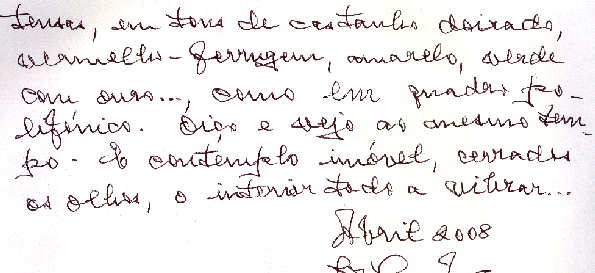 tensas, em tons de castanho doirado,
vermelho-ferrugem, amarelo, verde
com ouro..., como em quadro po-
lifónico. Oiço e vejo ao mesmo tem-
po. E contemplo imóvel, cerrados
os olhos, o interior todo a vibrar...
Abril 2008